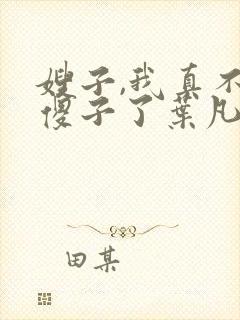 嫂子,我真不
傻子了葉凡
田某